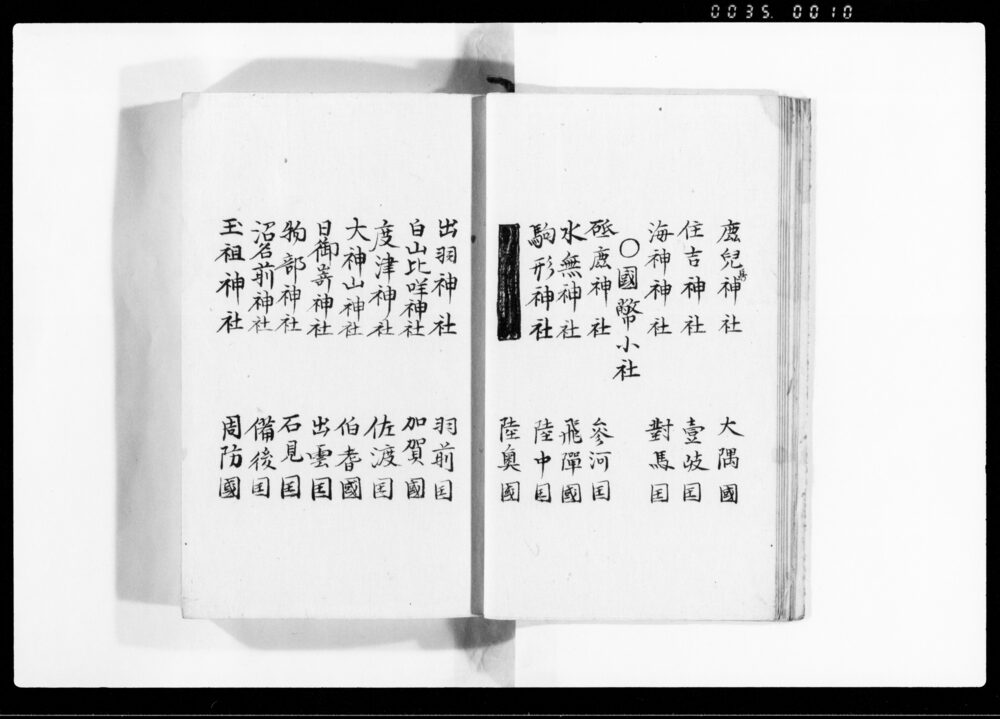 0035. 0010
鹿兒島神社 大隅國
住吉神社 壹岐囯
海神神社 對馬囯
〇國幣小社
砥鹿神社 參河囯
水無神社 飛彈國
駒形神社 陸中囯
陸奧國
出羽神社 羽前囯
白山比咩神社 加賀國
度津神社 佐渡囯
大神山神社 伯耆國
日御崎神社 出雲囯
物部神社 石見囯
沼名前神社 備後囯
玉祖神社 周防國